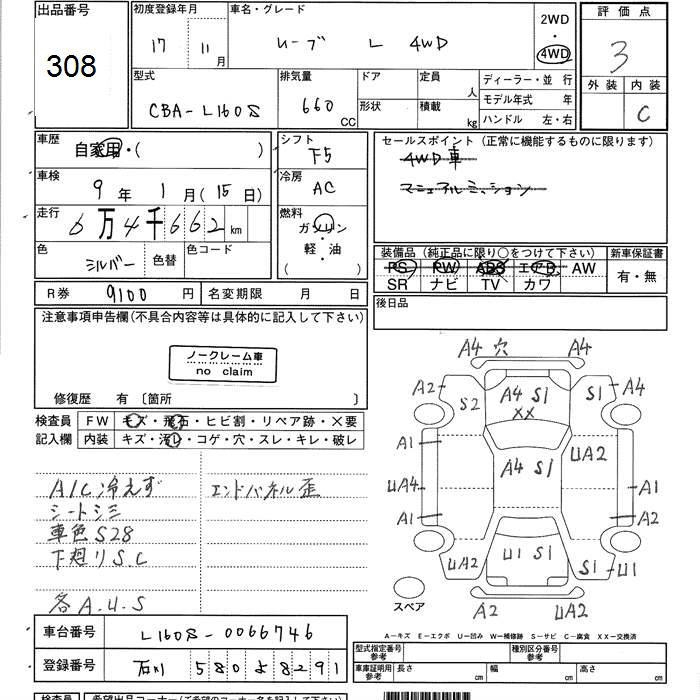 出品番号 初度登録年月 車名・グレード 2WD 評価点
308 17年 11月 ムーブ L 4WD 4WD 3
型式 排気量 ドア 定員 人 ディーラー・並 行 外装 内装
CBA-L160S 660 CC 形状 積載 kg モデル年式 年 C
ハンドル 左・右
車歴 自家用・( ) シフト F5 セールスポイント (正常に機能するものに限ります)
4WD車
車検 9年 1月(15日) 冷房 AC マニュアルミッション
走行 6万4千662km 燃料 ガソリン・軽・油 ( )
色 シルバー 色替 色コード 装備品 (純正品に限り○をつけて下さい) 新車保証書
PS PW ABS エアB AW 有・無
SR ナビ TV カワ
R券 9100円 名変期限 月 日 後日品
注意事項申告欄(不具合内容等は具体的に記入して下さい)
ノークレーム車
no claim
修復歴 有 〔箇所 〕
検査員 FW キズ・飛石・ヒビ割・リペア跡・×要
記入欄 内装 キズ・汚レ・コゲ・穴・スレ・キレ・破レ
A/C冷えず エンドパネル歪
シートシミ
車色S28
下廻りS.C
各A.U.S
A4 穴 A4
A2 S2 A4 S1 S1 A4
XX
A1 UA2
A4 S1
UA4 A1
A1 A2
UA2 U1 S1 S1 U1
スペア A2 UA2
A―キズ E―エクボ U―凹み W―補修跡 S―サビ C―腐食 XX―交換済
車台番号 L160S-0066746 型式指定番号 参考 種別区分番号 参考
登録番号 石川 580 よ 8291 車庫証明用 参考 長さ cm 幅 cm 高さ cm
検査員 希望出品コーナー(ご希望のコーナー名を記入して下さい)